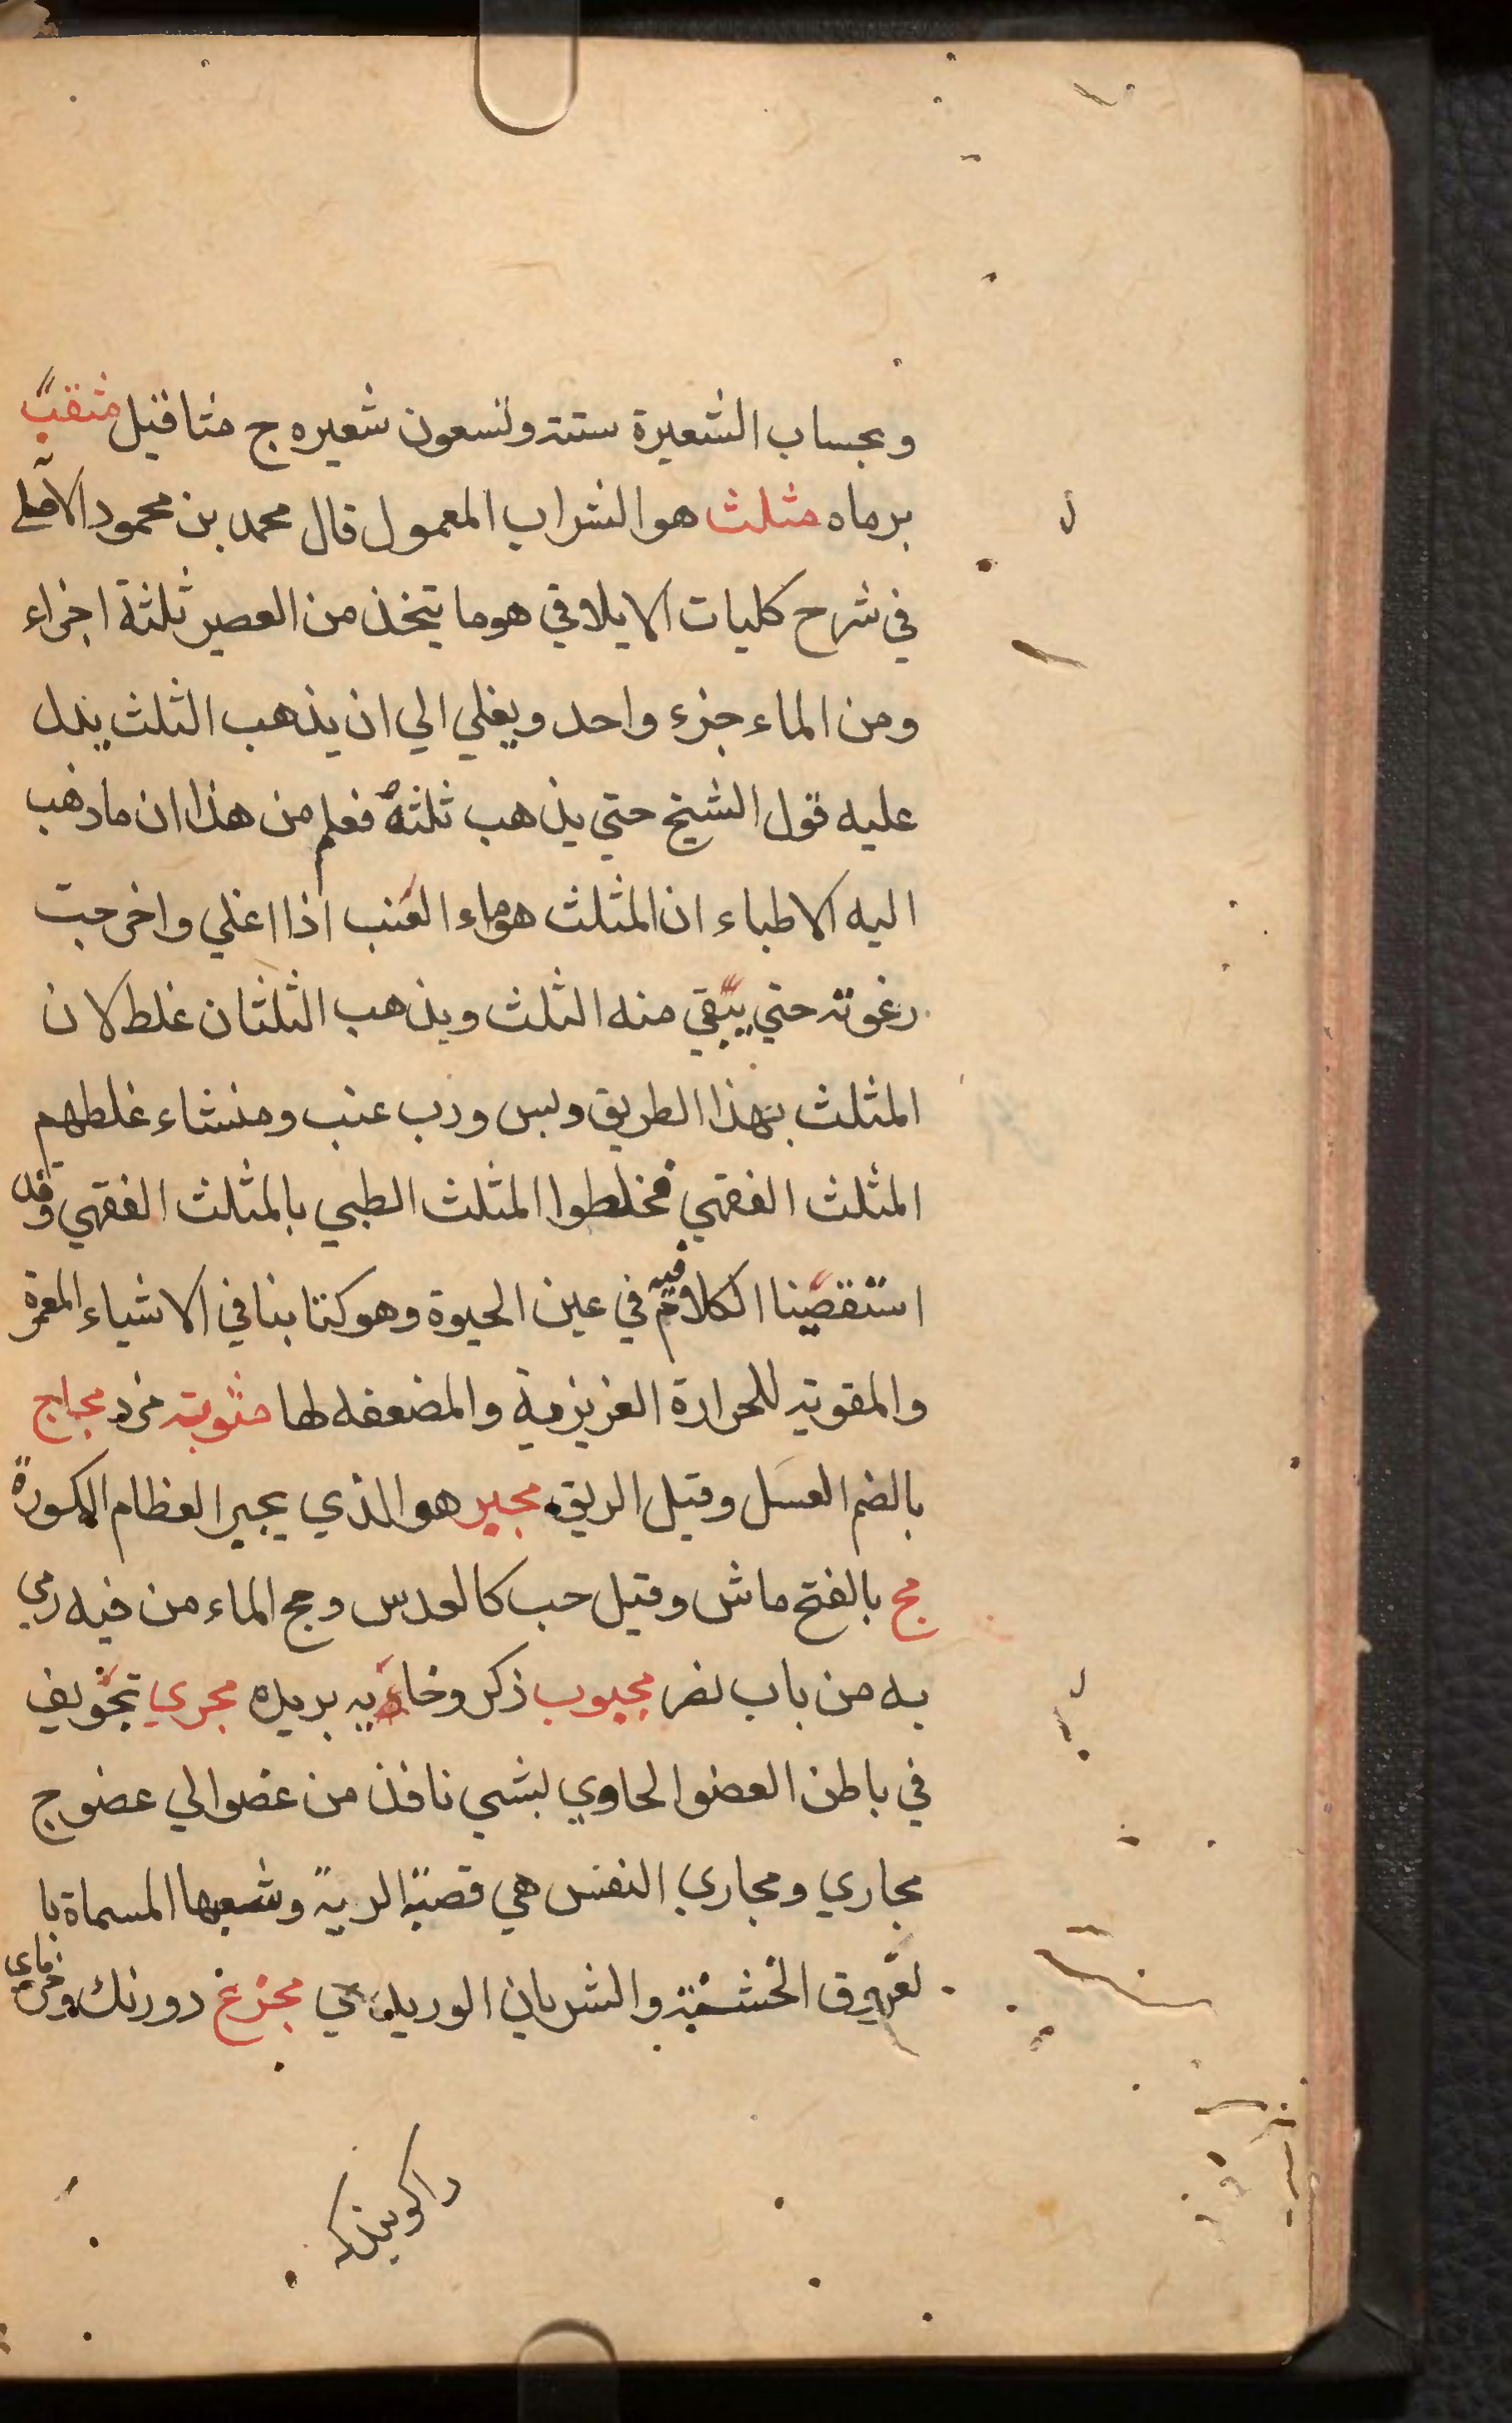 وبحساب الشعيرة ستة وتسعون شعيره ج مثاقيل مثقب
برماه مثلث هو الشراب المعمول قال محمد بن محمود الآملي
في شرح كليات الايلاقي هو ما يتخذ من العصير ثلثة اجزاء
ومن الماء جزء واحد ويغلي الي ان يذهب الثلث يدل
عليه قول الشيخ حتي يذهب ثلثه فعلم من هذا ان ما ذهب
اليه الاطباء ان المثلث هو ماء العنب اذا اغلي واخرجت
رغوته حتي يبقي منه الثلث ويذهب الثلثان غلط لان
المثلث بهذا الطريق وبس ورب عنب ومنشاء غلطهم
المثلث الفقهي فخلطوا المثلث الطبي بالمثلث الفقهي وقد
استقصينا الكلام فيه في عين الحيوة وهو كتابنا في الاشياء المعمرة
والمقوية للحرارة الغريزية والمضعفه لها مثوبة مزد مجاج
بالضم العسل وقيل الريق مجبر هو الذي يجبر العظام المكسورة
مج بالفتح ماش وقيل حب كالعدس ومج الماء من فيه رمي
به من باب نصر مجبوب ذكر وخايه بريده مجري تجويف
في باطن العضو الحاوي لشي نافذ من عضو الي عضو ج
مجاري ومجاري النفس هي قصبة الرية وشعبها المسماة با
لعروق الخشنة والشريان الوريدي مجزع دورنك